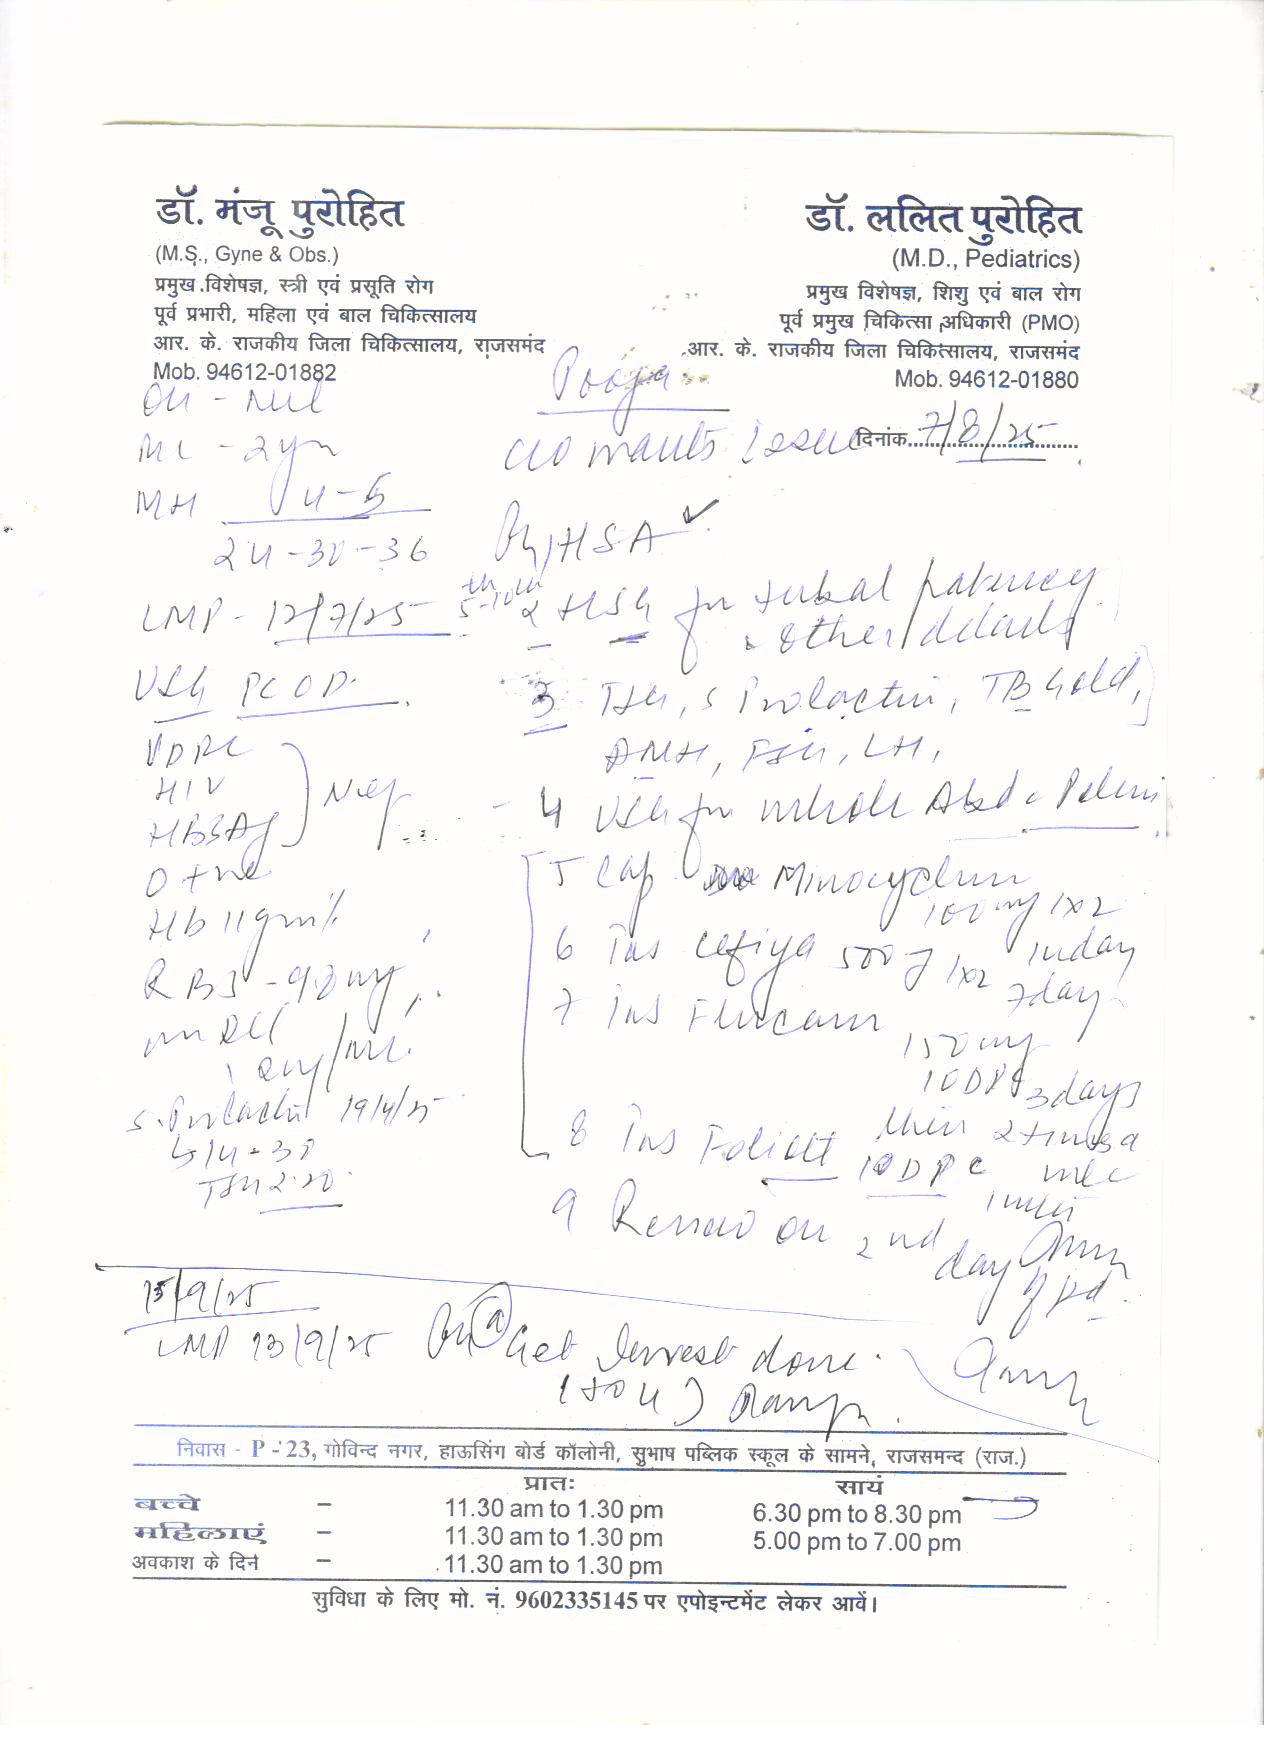 डॉ. मंजू पुरोहित
(M.S., Gyne & Obs.)
प्रमुख विशेषज्ञ, स्त्री एवं प्रसूति रोग
पूर्व प्रभारी, महिला एवं बाल चिकित्सालय
आर. के. राजकीय जिला चिकित्सालय, राजसमंद
Mob. 94612-01882
डॉ. ललित पुरोहित
(M.D., Pediatrics)
प्रमुख विशेषज्ञ, शिशु एवं बाल रोग
पूर्व प्रमुख चिकित्सा अधिकारी (PMO)
आर. के. राजकीय जिला चिकित्सालय, राजसमंद
Mob. 94612-01880
Pooja
दिनांक 7/8/25
c/o wants issue
OH - Nil
ML - 2yr
MH 4-5
24-30-36
LMP - 12/7/25
USG PCOD
VDRL
HIV
HBSAg
Neg
O +ve
Hb 11gm%
RBS - 90mg
S. Prolactin 19/4/25
TSH 2.20
HSA
5-10th
2 HSG for tubal patency
& other details
3 TSH, S Prolactin, TB Gold,
AMH, FSH, LH,
4 USG for whole Abd & Pelvis
5 Cap Minocycline
100mg 1x2
10day
6 cefiya 500 1x2
7day
7
150mg
3days
then 2 times a
8
9 Review on 2nd
day of pd.
15/9/25
LMP 13/9/25
Get Invest done.
निवास - P - 23, गोविन्द नगर, हाऊसिंग बोर्ड कॉलोनी, सुभाष पब्लिक स्कूल के सामने, राजसमन्द (राज.)
प्रातः सायं
बच्चे - 11.30 am to 1.30 pm 6.30 pm to 8.30 pm
महिलाएं - 11.30 am to 1.30 pm 5.00 pm to 7.00 pm
अवकाश के दिन - 11.30 am to 1.30 pm
सुविधा के लिए मो. नं. 9602335145 पर एपोइन्टमेंट लेकर आवें।